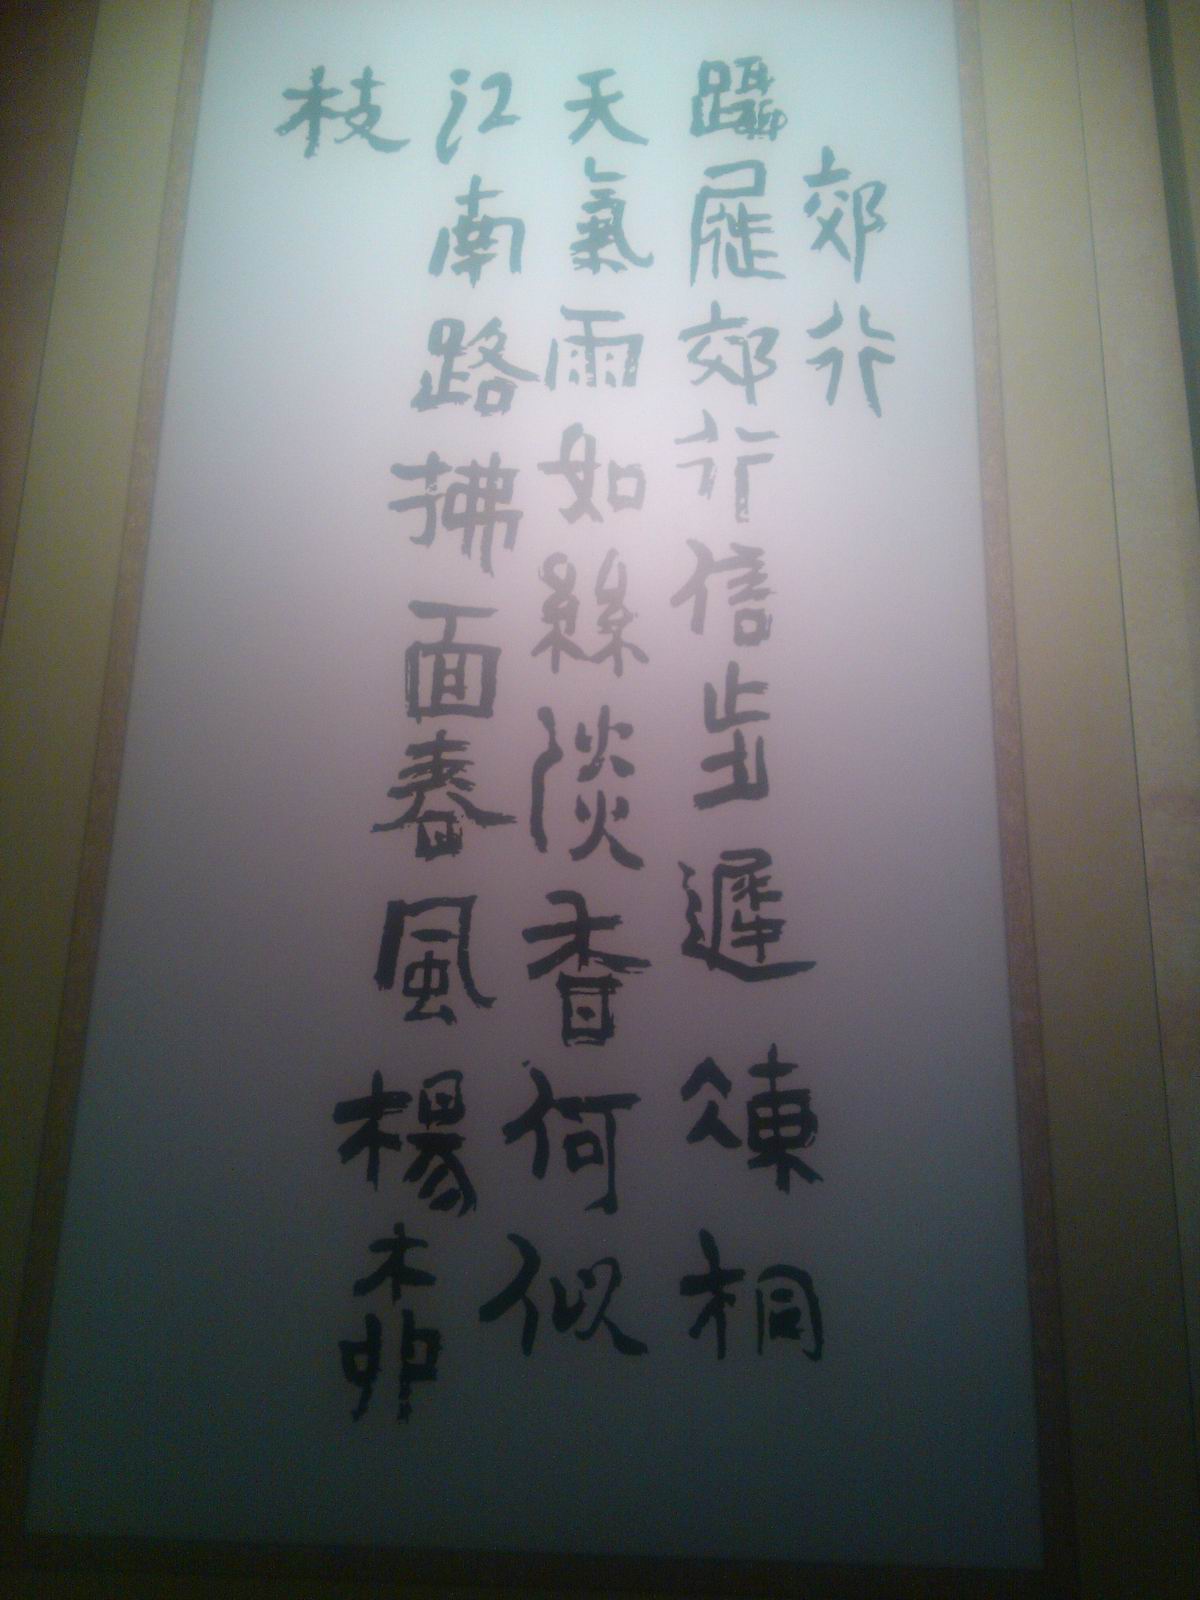 郊行
躡屣郊行信步遲楝桐
天氣雨如絲淡香何似
江南路拂面春風楊柳
枝